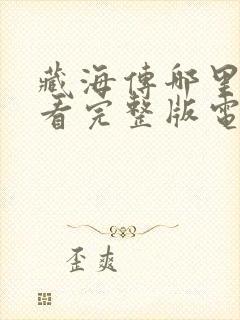 藏海傳哪里
看完整版電
歪爽